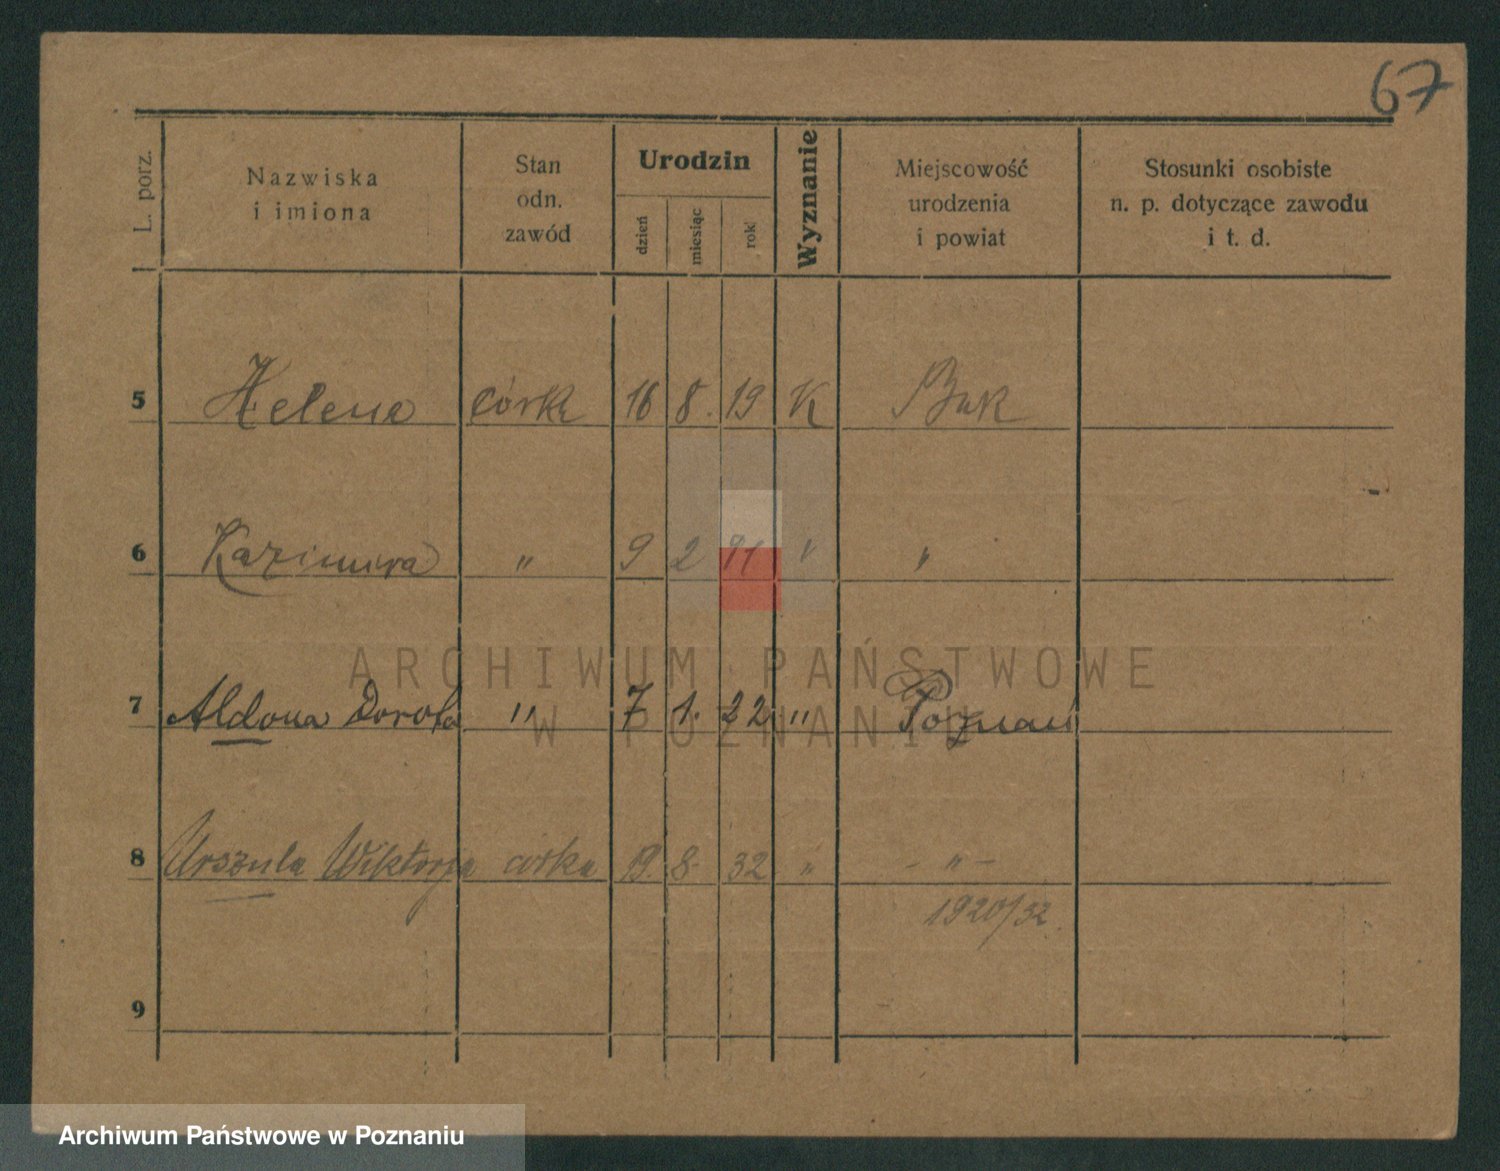 67
L. porz. Nazwiska i imiona Stan odn. zawód Urodzin dzień miesiąc rok Wyznanie Miejscowość urodzenia i powiat Stosunki osobiste n. p. dotyczące zawodu i t. d.
5 Helena córka 16 8. 19 K Buk
6 Kazimiera " 9 2 " "
ARCHIWUM PAŃSTWOWE
7 Aldona Dorota " 7 1. 22 " Poznań
W POZNANIU
8 Urszula Wiktorja córka 19. 8. 32 " - " -
1920/32.
9
Archiwum Państwowe w Poznaniu